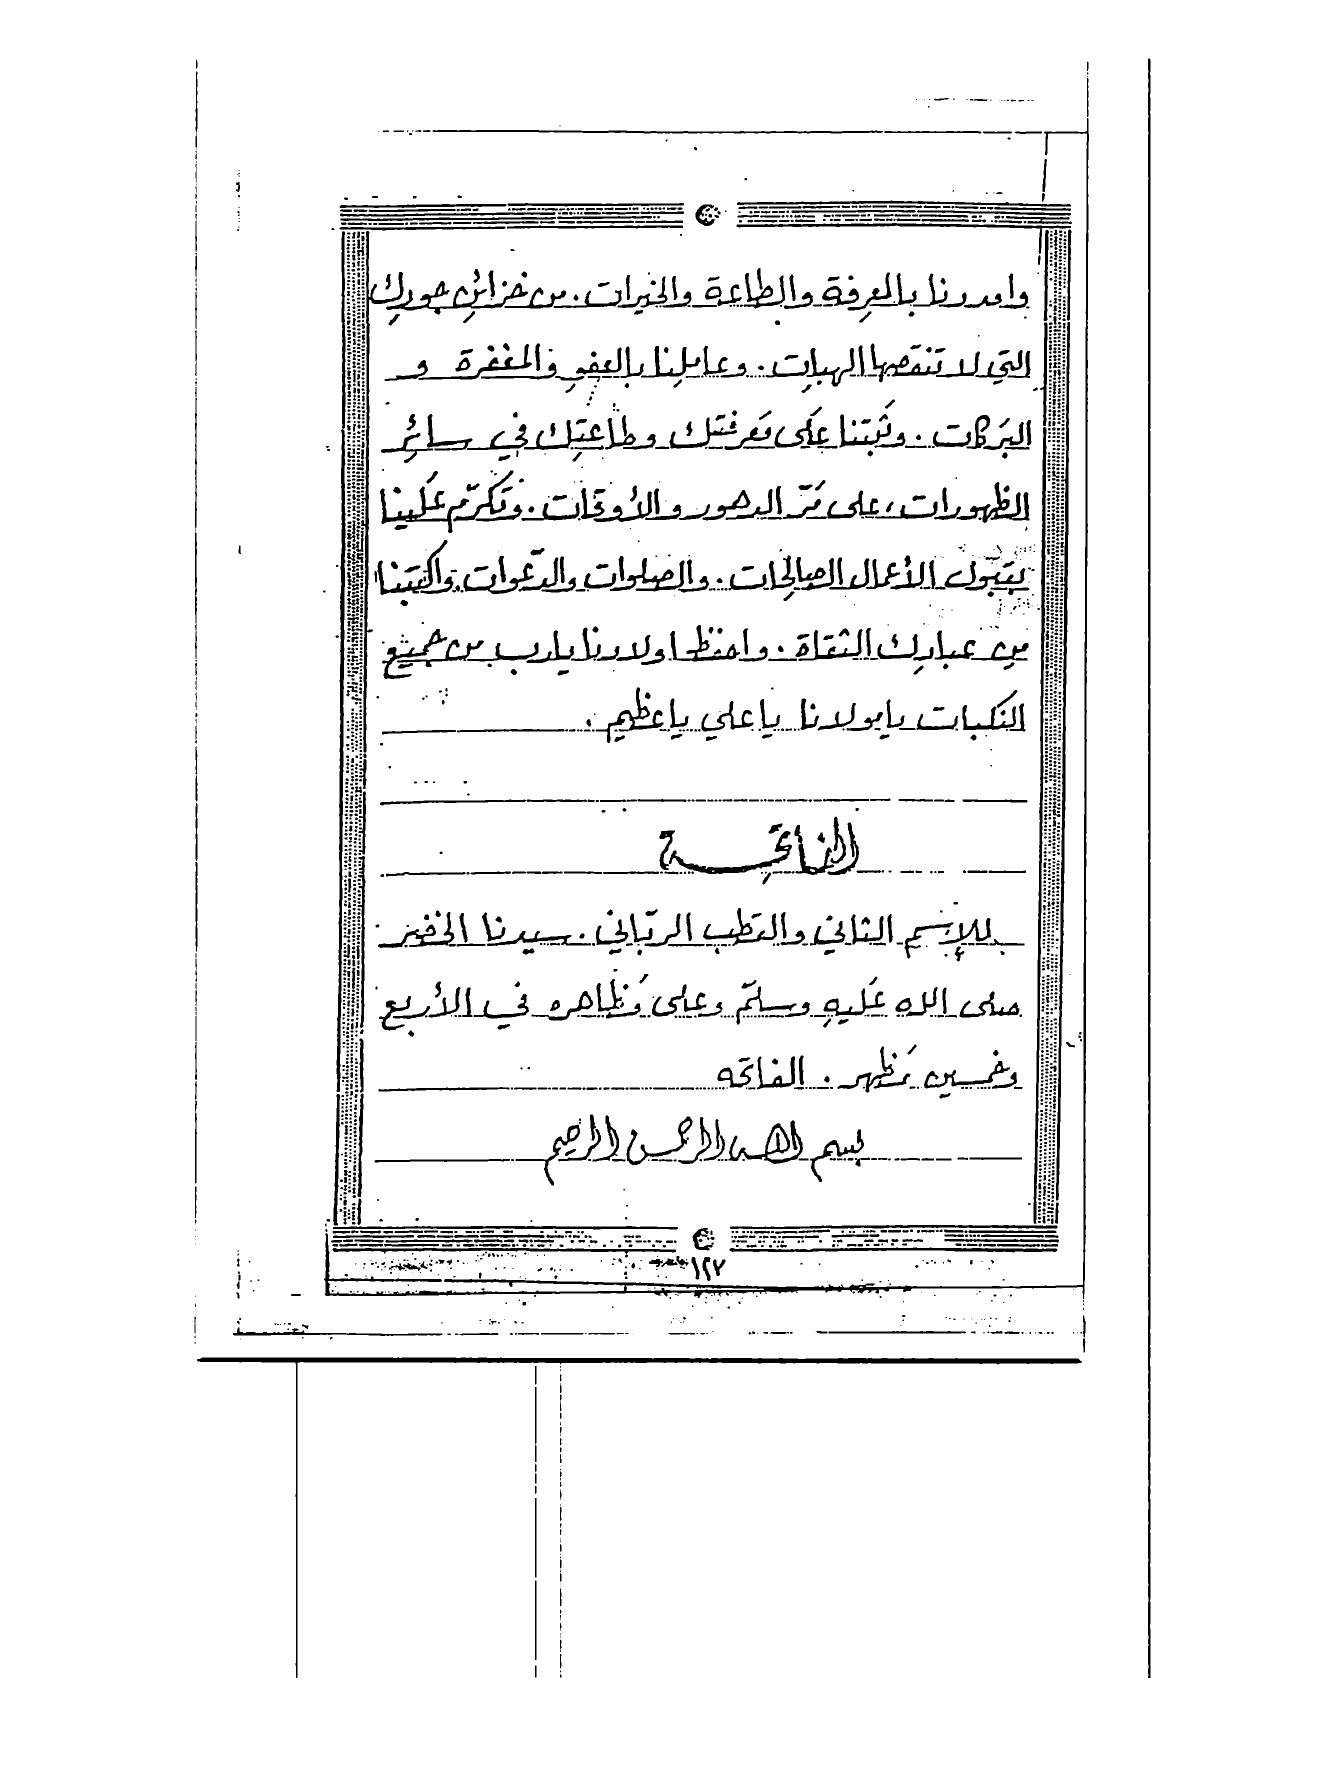 وامددنا بالمعرفة والطاعة والخيرات. من خزائن جودك
التي لا تنقصها الهبات. وعاملنا بالعفوِ والمغفرة و
البركات. وثَبتنا عَلَى مَعرفتك وطاعتِك في سائِر
الظهورات، على مَرّ الدهور والأوقات. وتكرّم عَلَينا
بقبول الأعمال الصالحات. والصلوات والدّعوات. واكتبنا
من عبادك الثقاة. واحفظ اولادنا يارب من جميع
النكبات يا مولانا يا علي يا عظيم.
الفَاتِحَة
للإسم الثاني والقطب الربّاني. سيدنا الخضر
صلى الله عَليهِ وسلّم وعلى مَظاهره في الأربع
وخمسين مَظهر. الفاتحه
بسم الله الرحمن الرحيم
١٢٧